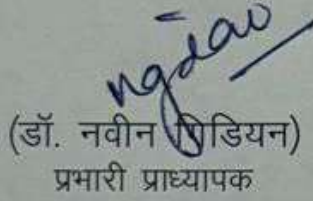 (डॉ. नवीन गिडियन)
प्रभारी प्राध्यापक